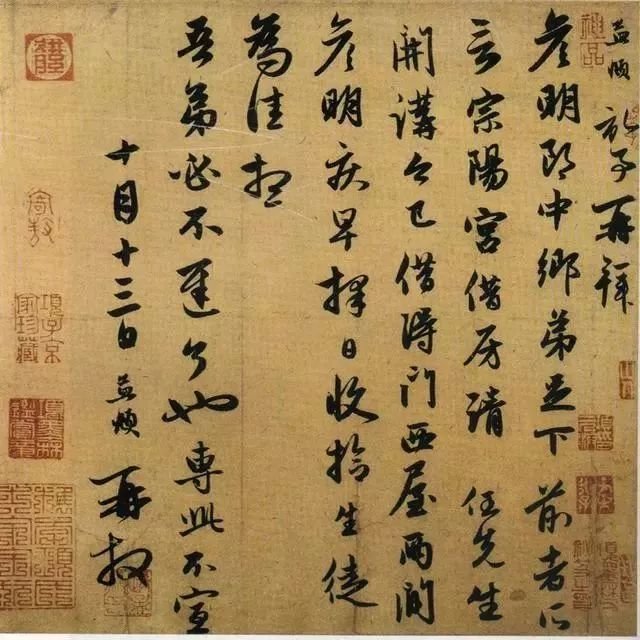 神品
孟頫 再拜
彥明郎中鄉弟足下 前者所
言宗陽宮借房請 任先生
開講今已借得門西屋兩間
彥明疾早擇日收拾生徒
為佳想
吾弟必不遲了也專此不宣
十月十三日 孟頫 再拜
項子京
家珍藏